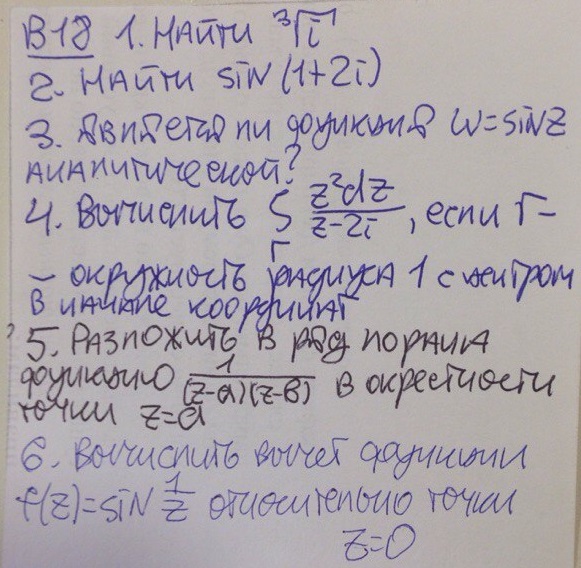 В18 1. Найти ∛i
2. Найти sin(1+2i)
3. Является ли функция w=sinz
аналитической?
4. Вычислить ∫_Γ z²dz/(z-2i), если Γ-
- окружность радиуса 1 с центром
в начале координат
5. Разложить в ряд Лорана
функцию 1/((z-a)(z-b)) в окрестности
точки z=a
6. Вычислить вычет функции
f(z)=sin 1/z относительно точки
z=0